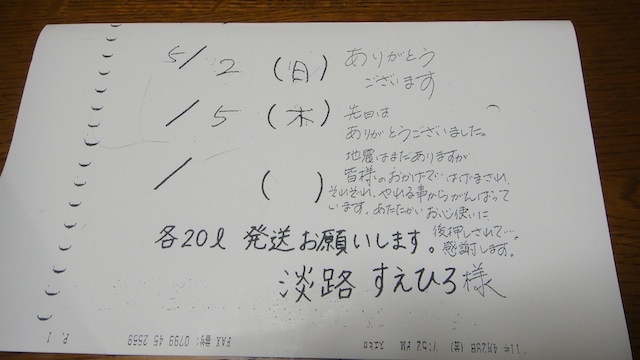 5/2 (日)
/5 (木)
/ ( )
ありがとう
ございます
先日は
ありがとうございました。
地震はまだありますが
皆様のおかげで… はげまされ、
それぞれ、やれる事からがんばって
います。あたたかいお心使いに
後押しされて…
感謝します。
各20ℓ 発送お願いします。
淡路 すえひろ様
11年 4月29日 (金) PM スエヒロ FAX 番号: 0799 45 2559 P. 1